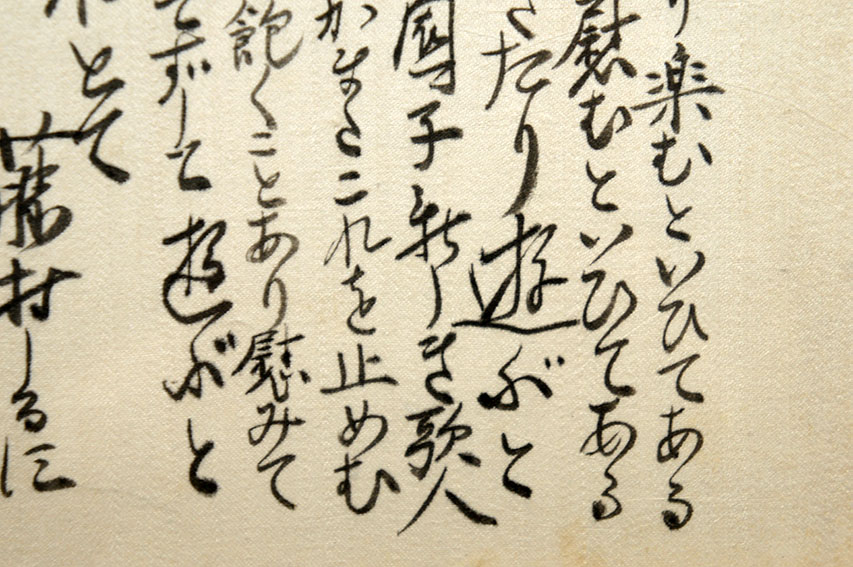 り楽むといひてある
慰むといひてある
きたり遊ぶと
園子新しき歌人
かまたこれを止めむ
飽くことあり慰みて
てずして遊ぶと
とて
藤村しるす